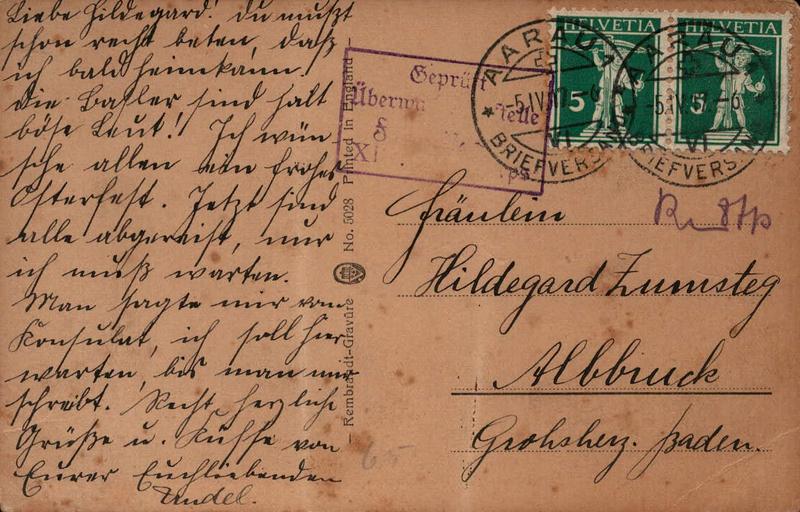 Liebe Hildegard! du mußt
schon recht beten, daß
ich bald heimkann!
die Basler sind halt
böse Leut! Ich wün
sche allen ein frohes
Osterfest. Jetzt sind
alle abgereist, nur
ich muß warten.
Man sagte mir vom
Konsulat, ich soll hier
warten, bis man mir
schreibt. Recht herzliche
Grüße u. Küsse von
Eurer Euchliebenden
Rembrandt-Gravüre No. 5028 Printed in England
Geprüft
Überwa telle
XI ps
HELVETIA HELVETIA
5 5
AARAU 1
BRIEFVERSAND
AARAU
BRIEFVERSAND
Fräulein
Hildegard Zumsteg
Albbruck
Grohsherz. Baden.
65